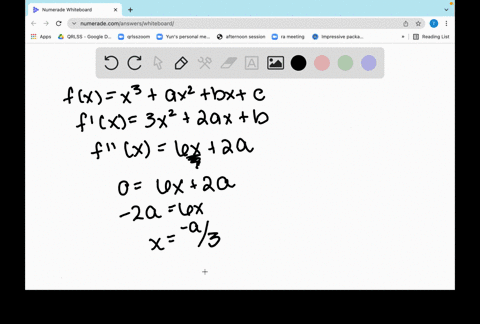 Numerade Whiteboard
numerade.com/answers/whiteboard/
Apps
QRLSS - Google D...
qrlsszoom
Yun's personal me...
afternoon session
ra meeting
Impressive packa...
Reading List
f(x) = x³ + ax² + bx + c
f'(x) = 3x² + 2ax + b
f''(x) = 6x + 2a
0 = 6x + 2a
-2a = 6x
x = -a/3